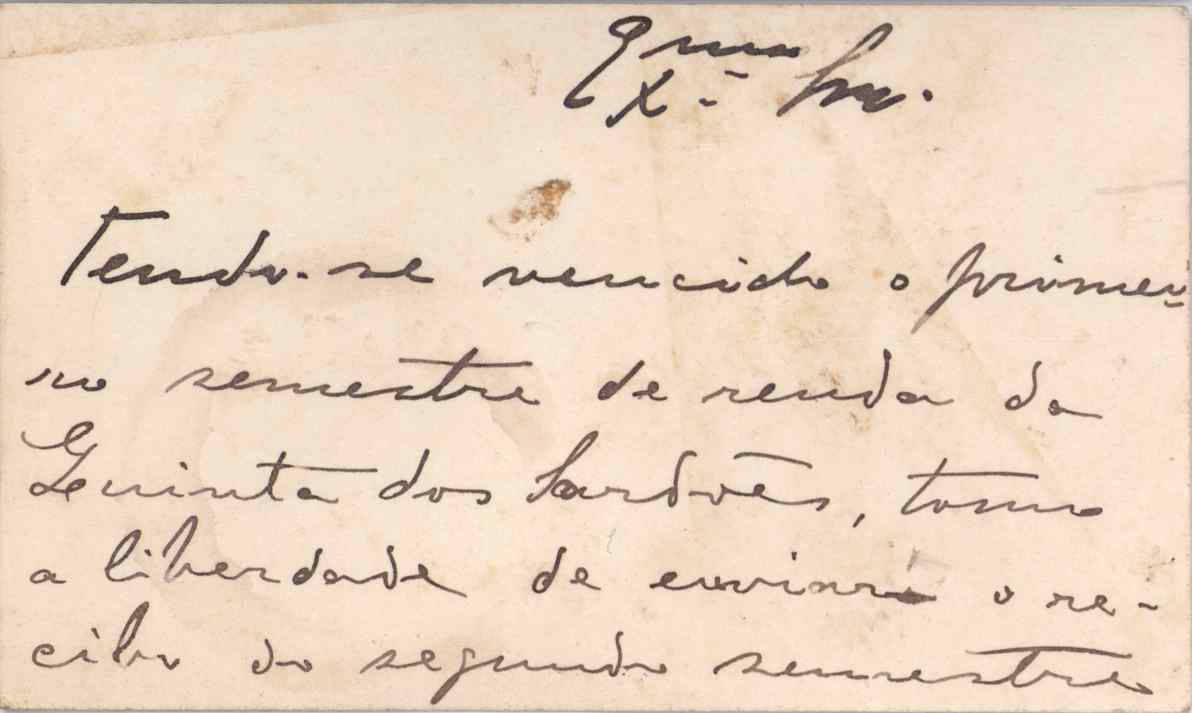 Exmo Sr.
Tendo-se vencido o primei-
ro semestre de renda da
Quinta dos Sardões, tomo
a liberdade de enviar o re-
cibo do segundo semestre